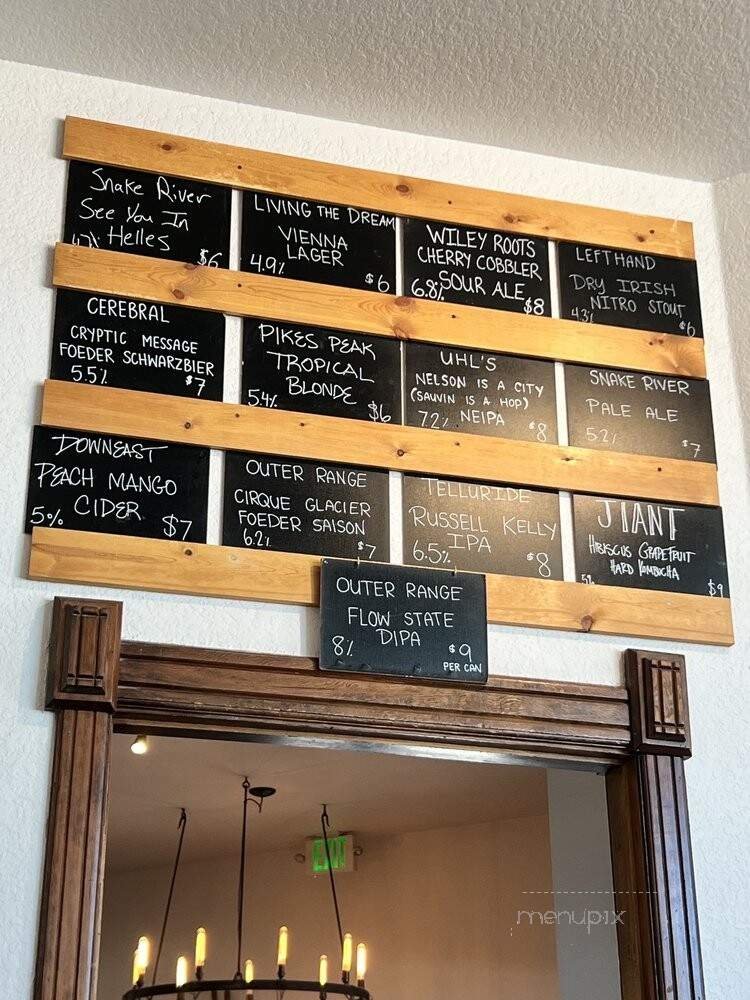 Snake River
See You In
Helles
$6
LIVING THE DREAM
VIENNA
LAGER
4.9% $6
WILEY ROOTS
CHERRY COBBLER
SOUR ALE
6.8% $8
LEFTHAND
DRY IRISH
NITRO STOUT
4.3% $6
CEREBRAL
CRYPTIC MESSAGE
FOEDER SCHWARZBIER
5.5% $7
PIKES PEAK
TROPICAL
BLONDE
5.4% $6
UHL'S
NELSON IS A CITY
(SAUVIN IS A HOP)
7.2% NEIPA $8
SNAKE RIVER
PALE ALE
5.2% $7
DOWNEAST
PEACH MANGO
CIDER
5% $7
OUTER RANGE
CIRQUE GLACIER
FOEDER SAISON
6.2% $7
TELLURIDE
RUSSELL KELLY
IPA
6.5% $8
JIANT
HIBISCUS GRAPEFRUIT
HARD KOMBUCHA
5% $9
OUTER RANGE
FLOW STATE
DIPA
8% $9
PER CAN
EXIT
menupix